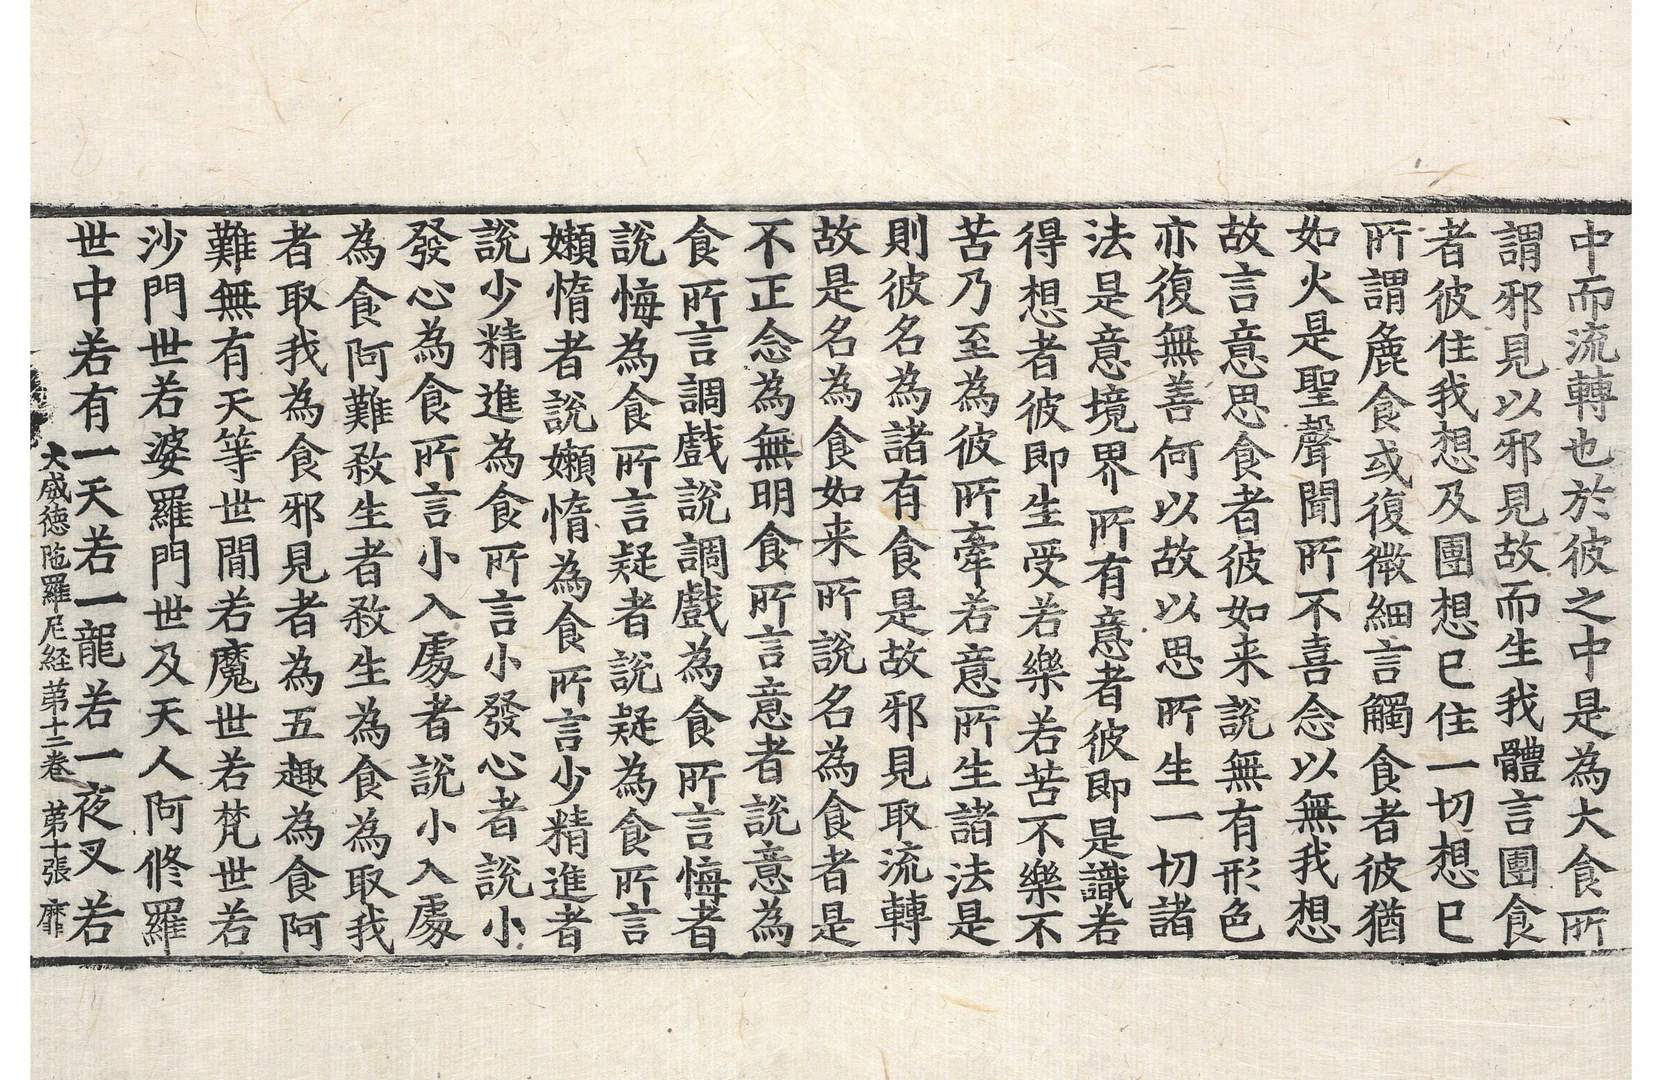 中而流轉也於彼之中是為大食所
謂邪見以邪見故而生我體言團食
者彼住我想及團想已住一切想已
所謂麁食或復微細言觸食者彼猶
如火是聖聲聞所不喜念以無我想
故言意思食者彼如来說無有形色
亦復無善何以故以思所生一切諸
法是意境界所有意者彼即是識若
得想者彼即生受若樂若苦不樂不
苦乃至為彼所牽若意所生諸法是
則彼名為諸有食是故邪見取流轉
故是名為食如来所說名為食者是
不正念為無明食所言意者說意為
食所言調戲說調戲為食所言悔者
說悔為食所言疑者說疑為食所言
嬾惰者說嬾惰為食所言少精進者
說少精進為食所言小發心者說小
發心為食所言小入處者說小入處
為食阿難殺生者殺生為食為取我
者取我為食邪見者為五趣為食阿
難無有天等世間若魔世若梵世若
沙門世若婆羅門世及天人阿脩羅
世中若有一天若一龍若一夜叉若
大威德陁羅尼経第十二卷 第十張 靡